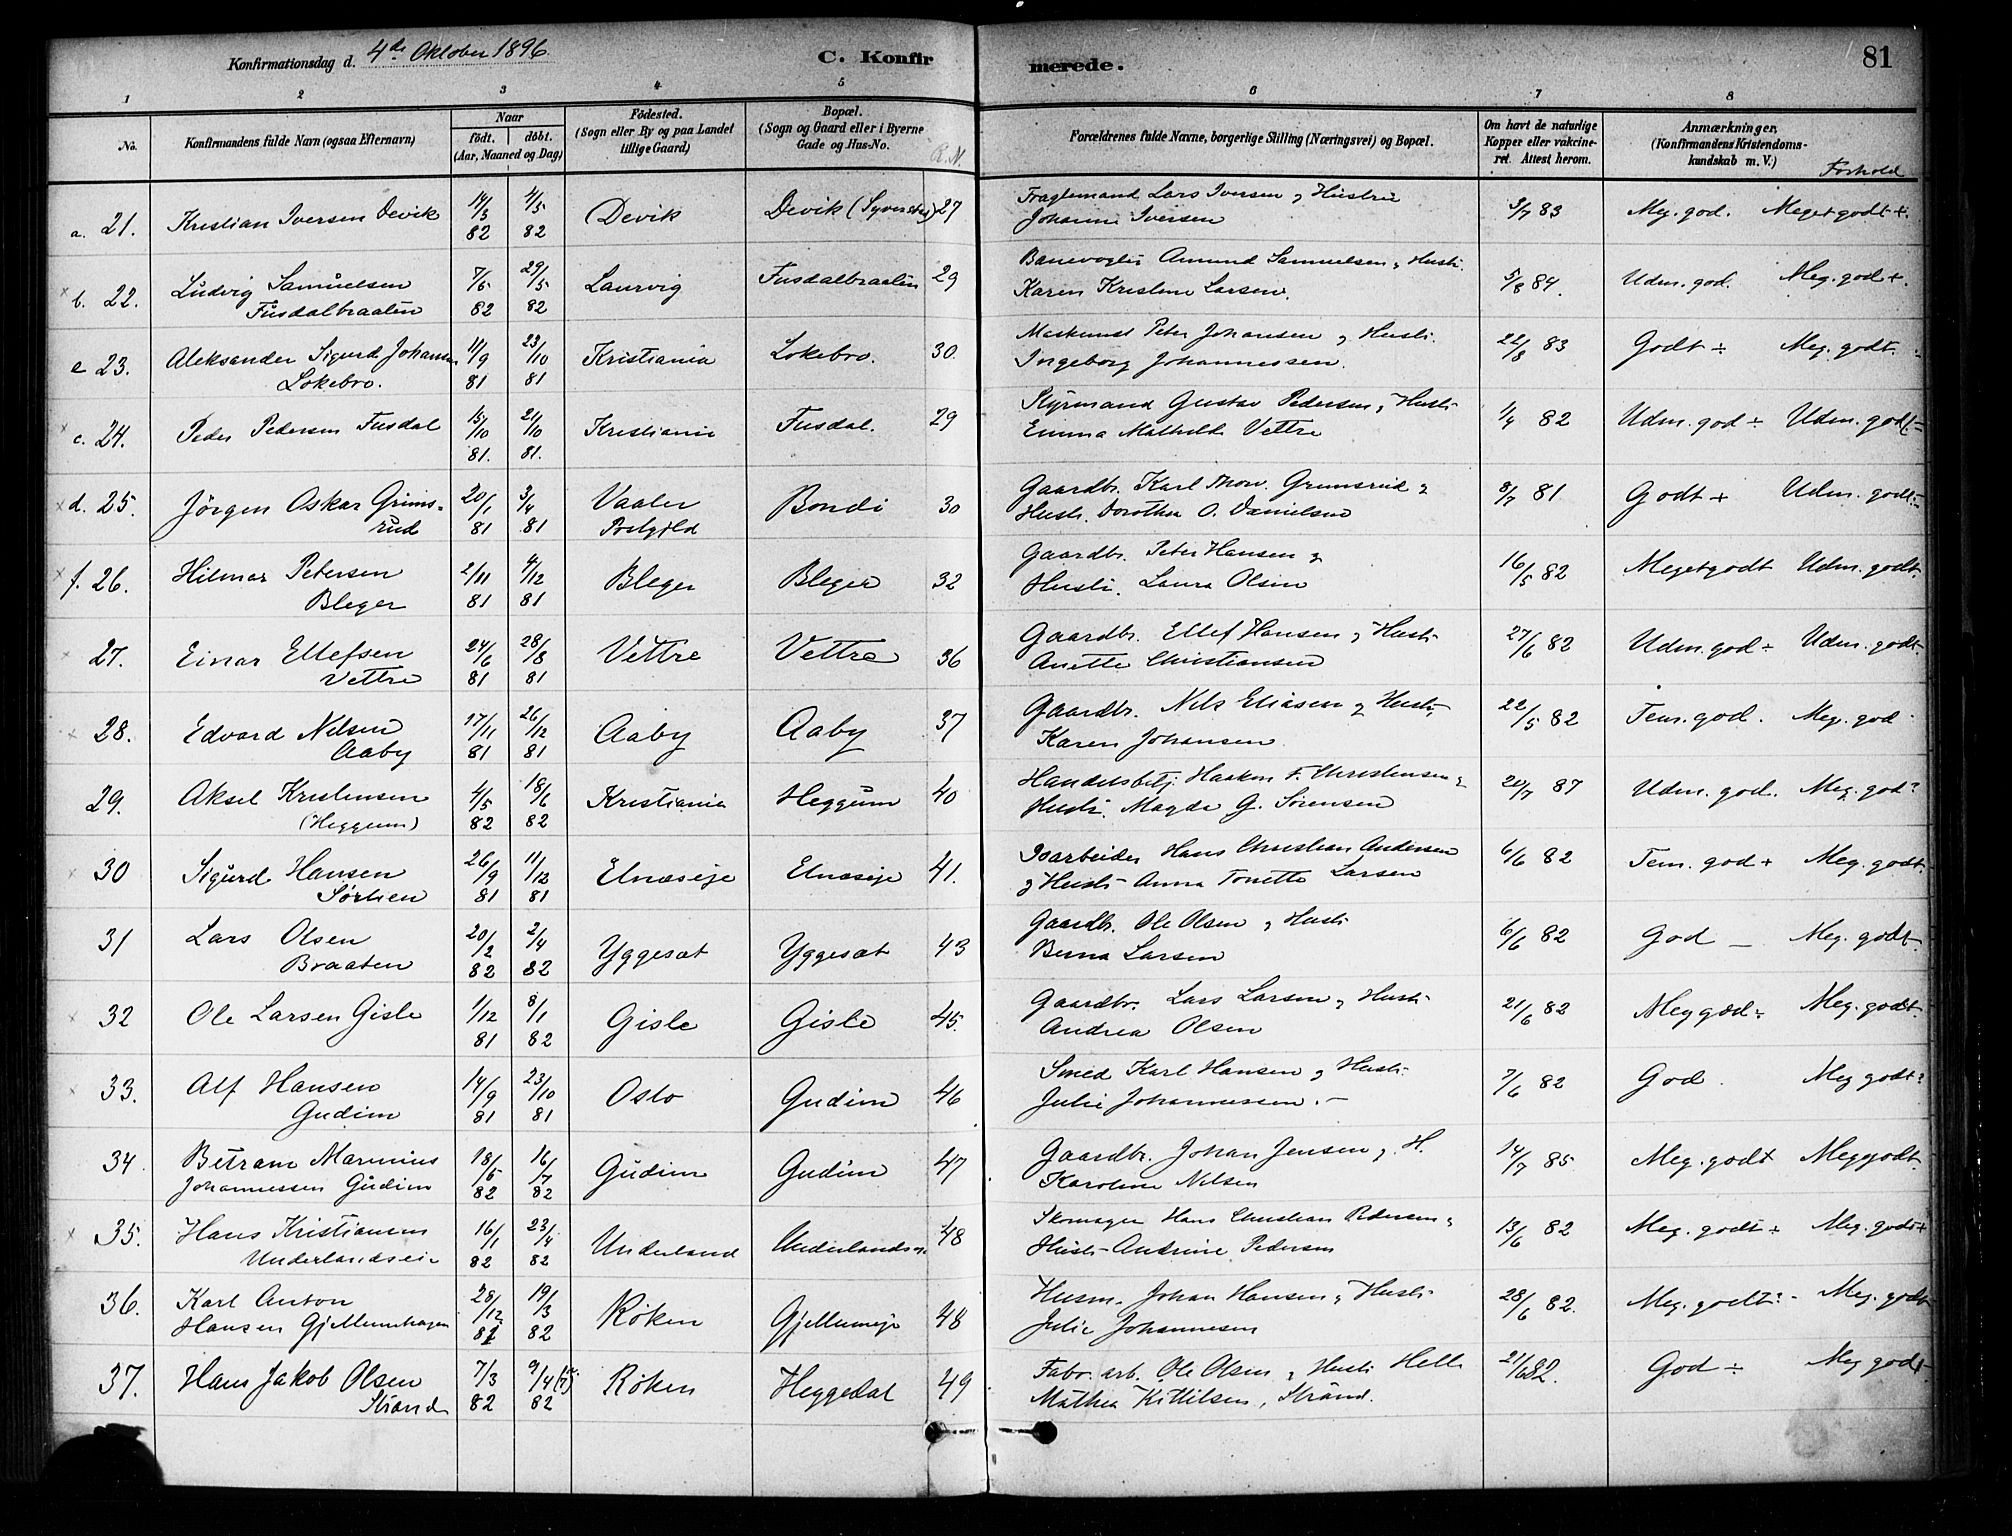 Konfirmationsdag d. 4de Oktober 1896
C. Konfirmerede.
81
1 2 3 4 5 6 7 8
No. Konfirmandens fulde Navn (ogsaa Efternavn) Naar født. døbt. (Aar, Maaned og Dag) Fødested. (Sogn eller By og paa Landet tillige Gaard) Bopæl. (Sogn og Gaard eller i Byerne Gade og Hus-No. R.N. Forældrenes fulde Navne, borgerlige Stilling (Næringsvei) og Bopæl. Om havt de naturlige Kopper eller vakcineret. Attest herom. Anmærkninger, (Konfirmandens Kristendomskundskab m. V.) Forhold
a. 21. Kristian Iversen Devik 14/3 82 4/5 82 Devik Devik 27 Lars Iversen & Hustru
Johanne Iversen 3/7 83 Meg. god. Meget godt +.
b. 22. Ludvig Samuelsen 7/5 82 29/5 82 Laurvig Fusdalbraaten 29 Banevogter Amund Samuelsen & Hustr.
Fusdalbraaten Karen Kristine Larsen. 5/8 84. Udm. god. Meg. god +.
e 23. Aleksander Sigurd Johansen 11/9 81 23/10 81 Kristiania Lokebro. 30. Maskinist Peter Johansen & Hustr.
Lokebro. Ingeborg Johannessen. 22/8 83 Godt ÷ Meg. godt.
c. 24. Peder Pedersen Fusdal 15/10 81. 21/10 81. Kristiania Fusdal. 29 Styrmand Gustav Pedersen & Hustr.
Emma Mathilde Vettre 1/4 82 Udm. god ÷ Udm. godt.
d. 25. Jörgen Oskar Grims= 20/1 81 3/4 81 Vaaler Bondi 30 Gaardbr. Karl Grimsrud &
rud Prstgjld Hustr. Dorothea O. Danielsen 8/7 81 Godt + Udm. godt
f. 26. Hilmar Petersen 2/11 81 4/12 81 Bleger Bleger 32 Gaardbr. Peter Hansen &
Bleger Hustr. Laura Olsen 16/5 82 Meget godt Udm. godt.
27. Einar Ellefsen 24/6 81 28/8 81 Vettre Vettre 36 Gaardbr. Ellef Hansen & Hustr.
Vettre Anette Christiansen 27/6 82 Udm. god ÷ Udm. godt.
28. Edvard Nilsen 17/11 81 26/12 81 Aaby Aaby 37 Gaardbr. Nils Eliasen & Hustr.
Aaby Karen Johansen 22/5 82 Tem. god. Meg. god
29. Aksel Kristensen 4/5 82 18/6 82 Kristiania Heggum 40 Handelsbetj. Haakon F. Christensen &
(Heggum) Hustr. Magda G. Sörensen 20/7 87 Udm. god. Meg. god?
30 Sigurd Hansen 26/9 81 11/12 81 Elnæseje Elnæseje 41. Isarbeider Hans Christian Andersen
& Hustr. Anna Tonette Larsen 6/6 82 Tem. god + Meg. godt.
31 Lars Olsen 20/2 82 2/4 82 Yggesæt Yggesæt 43 Gaardbr. Ole Olsen & Hustr.
Braaten Berna Larsen 6/6 82 God — Meg. godt.
32 Ole Larsen Gisle 1/12 81 8/1 82 Gisle Gisle 45. Gaardbr. Lars Larsen & Hustr.
Andrea Olsen 21/6 82 Meg god ÷ Meg. godt
33. Alf Hansen 14/9 81 23/10 81 Oslo Gudim 46 Smed Karl Hansen & Hustr.
Gudim Julie Johannessen.— 7/6 82 God. Meg godt?
34 Betram Marinius 18/5 82 16/7 82 Gudim Gudim 47 Gaardbr. Johan Jensen & H.
Johannessen Gudim Karoline Nilsen 14/7 85. Meg. godt Meg godt.
35. Hans Kristiansen 16/1 82 23/4 82 Underland 48 Skomager Hans Christian Pedersen &
Underlandseie Hustr. Andrine Pedersen 13/6 82 Meg. godt ÷ Meg. godt
36. Karl Anton 28/12 19/3 82 Röken Gjellumeje 48 Husm. Johan Hansen & Hustr.
Hansen Gjellumhagen Julie Johannesen 28/6 82. Meg. godt? - Meg. godt
37. Hans Jakob Olsen 7/3 82 9/4 (?) 82 Röken Heggedal 49 Fabr. arb. Ole Olsen & Hustr. Helle
Strand Mathea Kittilsen, Strand. 21/6 82. God ÷ Meg godt